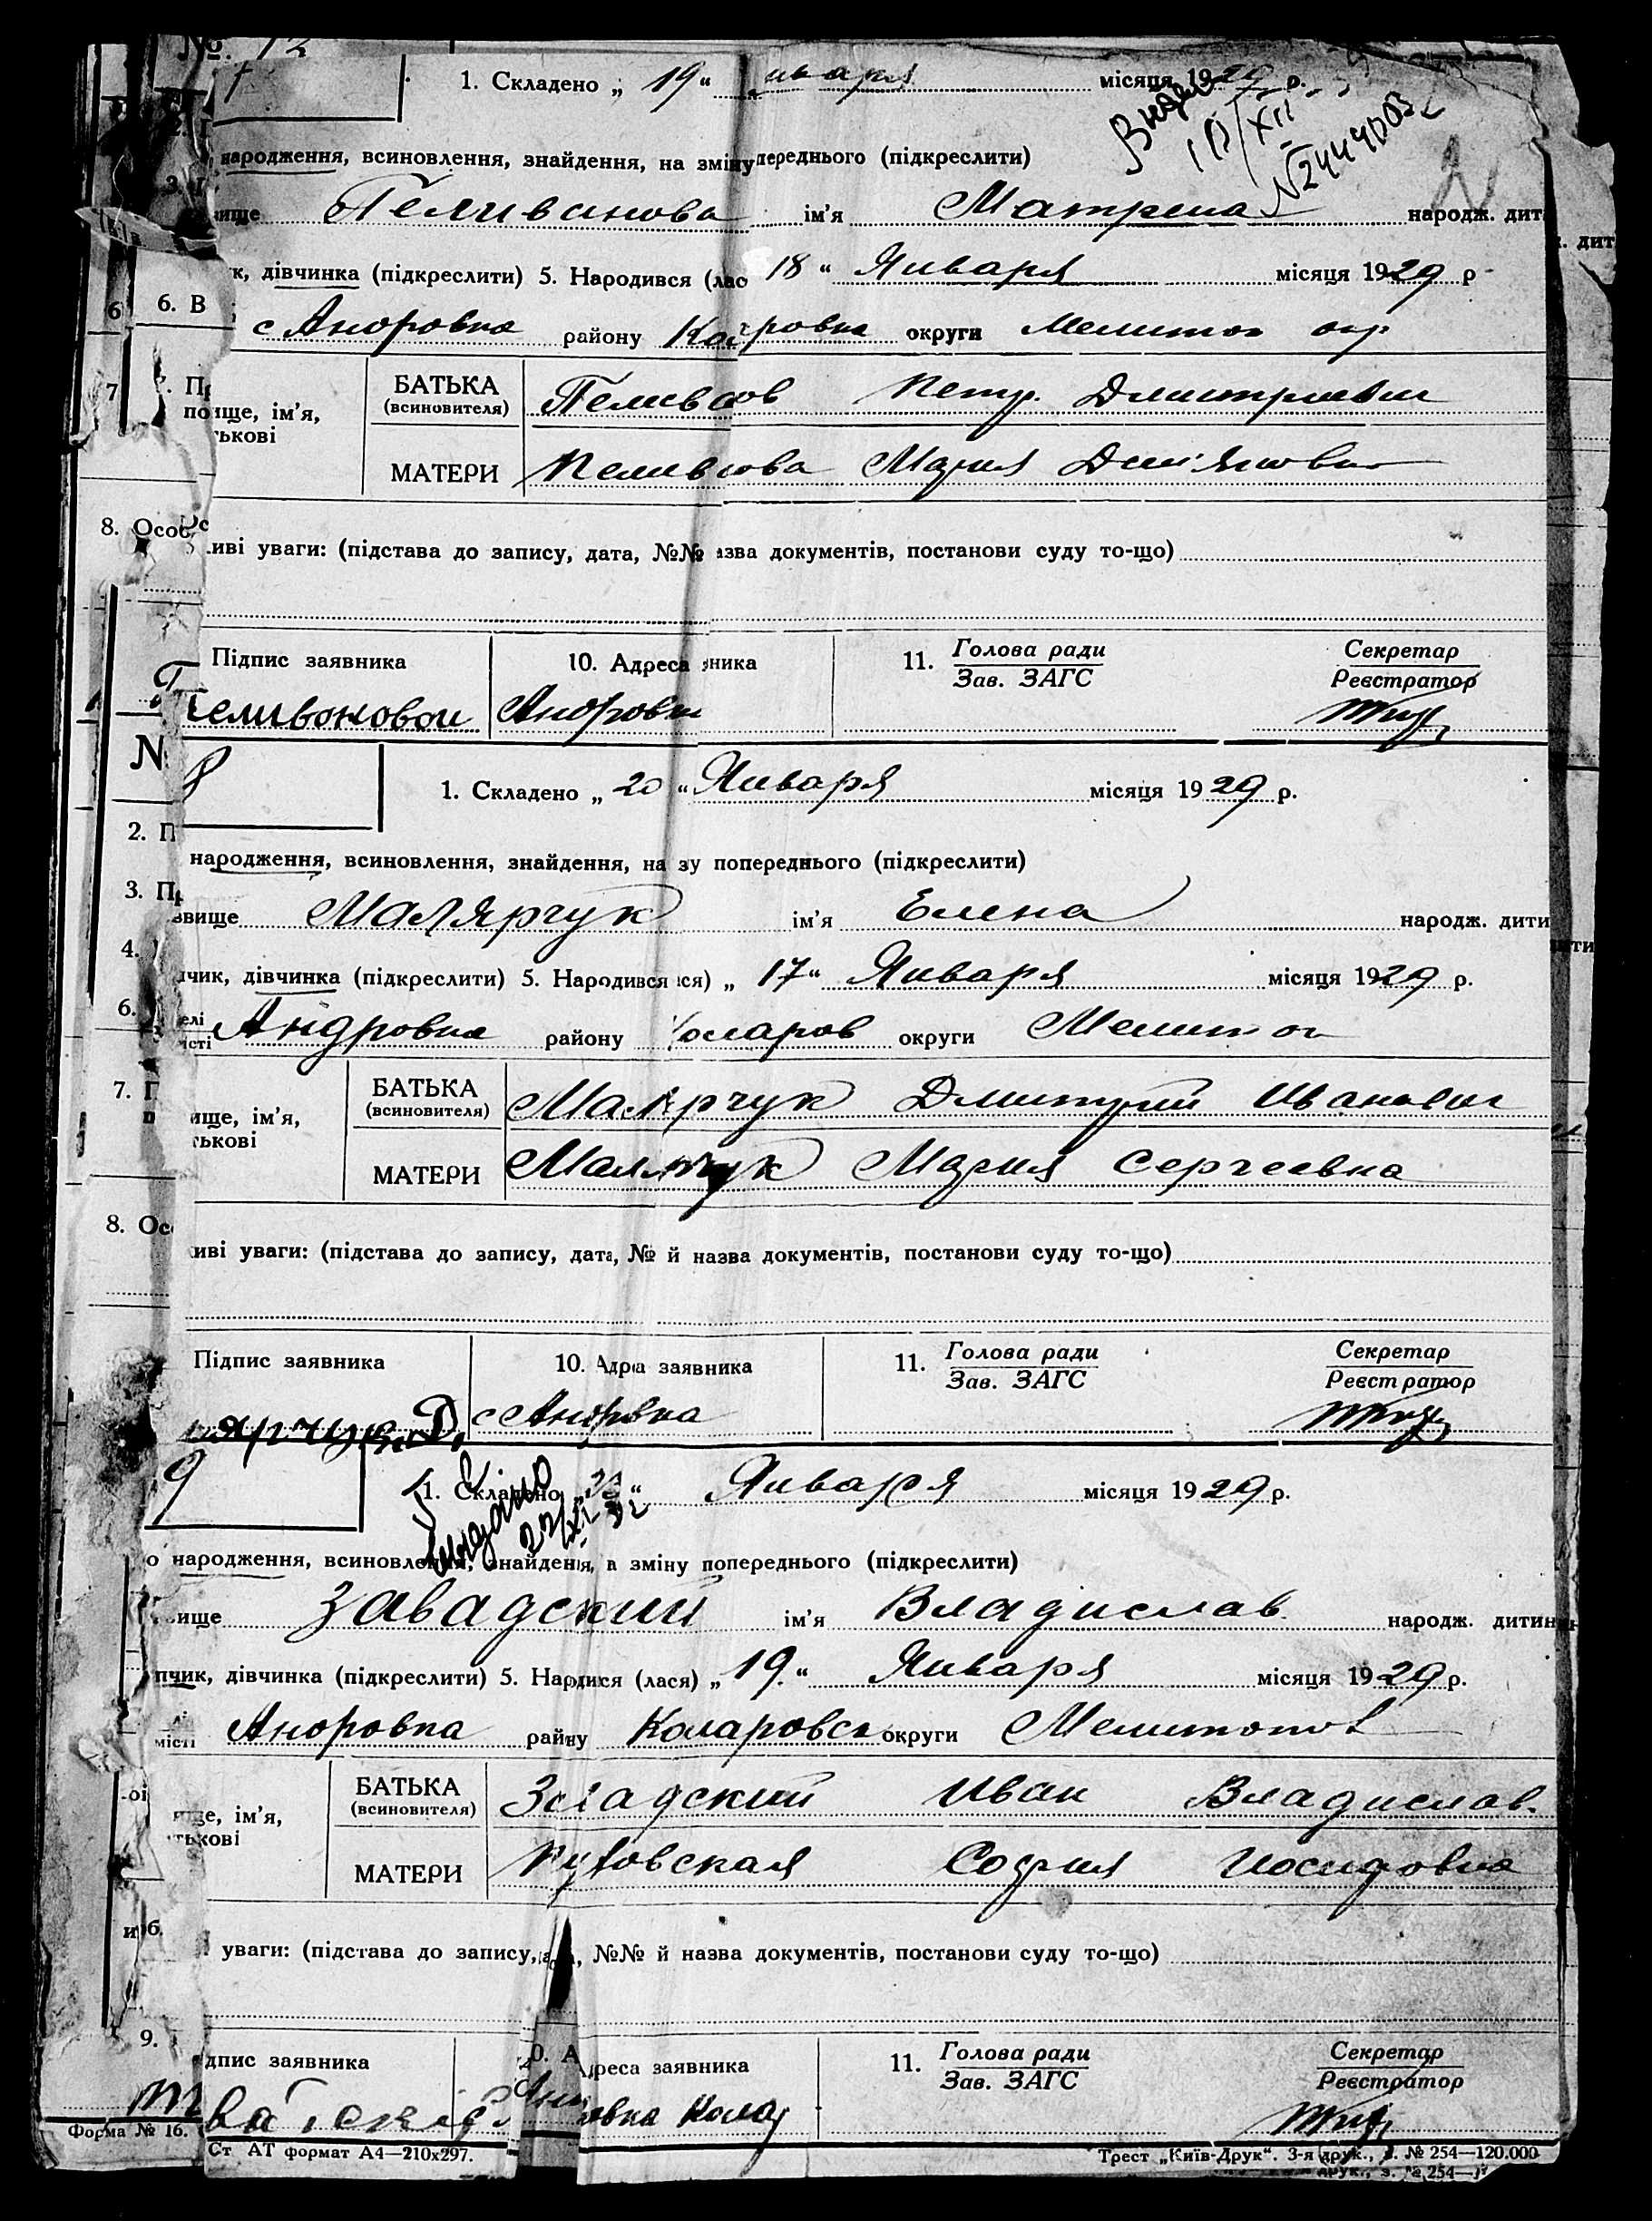 №. 12
7
1. Складено „ 19 “ января місяця 1929 р.
10/XII
народження, всиновлення, знайдення, на зміну переднього (підкреслити)
вище Пеливанова ім’я Матрена народж. дит
к, дівчинка (підкреслити) 5. Народився (лас 18 “ Января місяця 1929 р
6. В с Андровка району округи Мелитоп окр
7. Пр
БАТЬКА Петр Дмитриевич
поище, ім’я, (всиновителя)
тькові
МАТЕРИ Мария
8. Особ
иві уваги: (підстава до запису, дата, №№ азва документів, постанови суду то-що)
Підпис заявника 10. Адреса вника 11. Голова ради Секретар
Зав. ЗАГС Реєстратор
Пеливоновои Андровка
№ 8
1. Складено „ 20 “ Января місяця 1929 р.
2. П
народження, всиновлення, знайдення, на зу попереднього (підкреслити)
3. Пр
звище Малярчук ім’я Елена народж. дити
4.
пчик, дівчинка (підкреслити) 5. Народився ся) „ 17 “ Января місяця 1929 р.
6. елі Андровка району Коларов округи Мелитоп
місті
7. П
БАТЬКА Малярчук Дмитрий Иванович
ище, ім’я, (всиновителя)
тькові
МАТЕРИ Малярчук Мария Сергеевна
8. Осо
иві уваги: (підстава до запису, дата, № й назва документів, постанови суду то-що)
Підпис заявника 10. Адреа заявника 11. Голова ради Секретар
Зав. ЗАГС Реєстратор
ярчук Д. с Андровка
9
1. Складено „ “ Января місяця 1929 р.
видано
о народження, всиновлення, знайдення, а зміну попереднього (підкреслити)
вище Завадский ім’я Владислав народж. дитин
пчик, дівчинка (підкреслити) 5. Народися (лася) „ 19. “ Января місяця 1929 р.
місті Андровка району Коларовск округи Мелитопов
БАТЬКА Завадский Иван Владислав.
ище, ім’я, (всиновителя)
тькові
МАТЕРИ София Иосифовна
уваги: (підстава до запису, №№ й назва документів, постанови суду то-що)
9.
дпис заявника 10. Адреса заявника 11. Голова ради Секретар
Зав. ЗАГС Реєстратор
овка Кола
Форма № 16.
Ст. АТ формат А4—210х297. Трест „Київ-Друк“. 3-я друк., з. № 254—120.000
друк., з. № 254—1